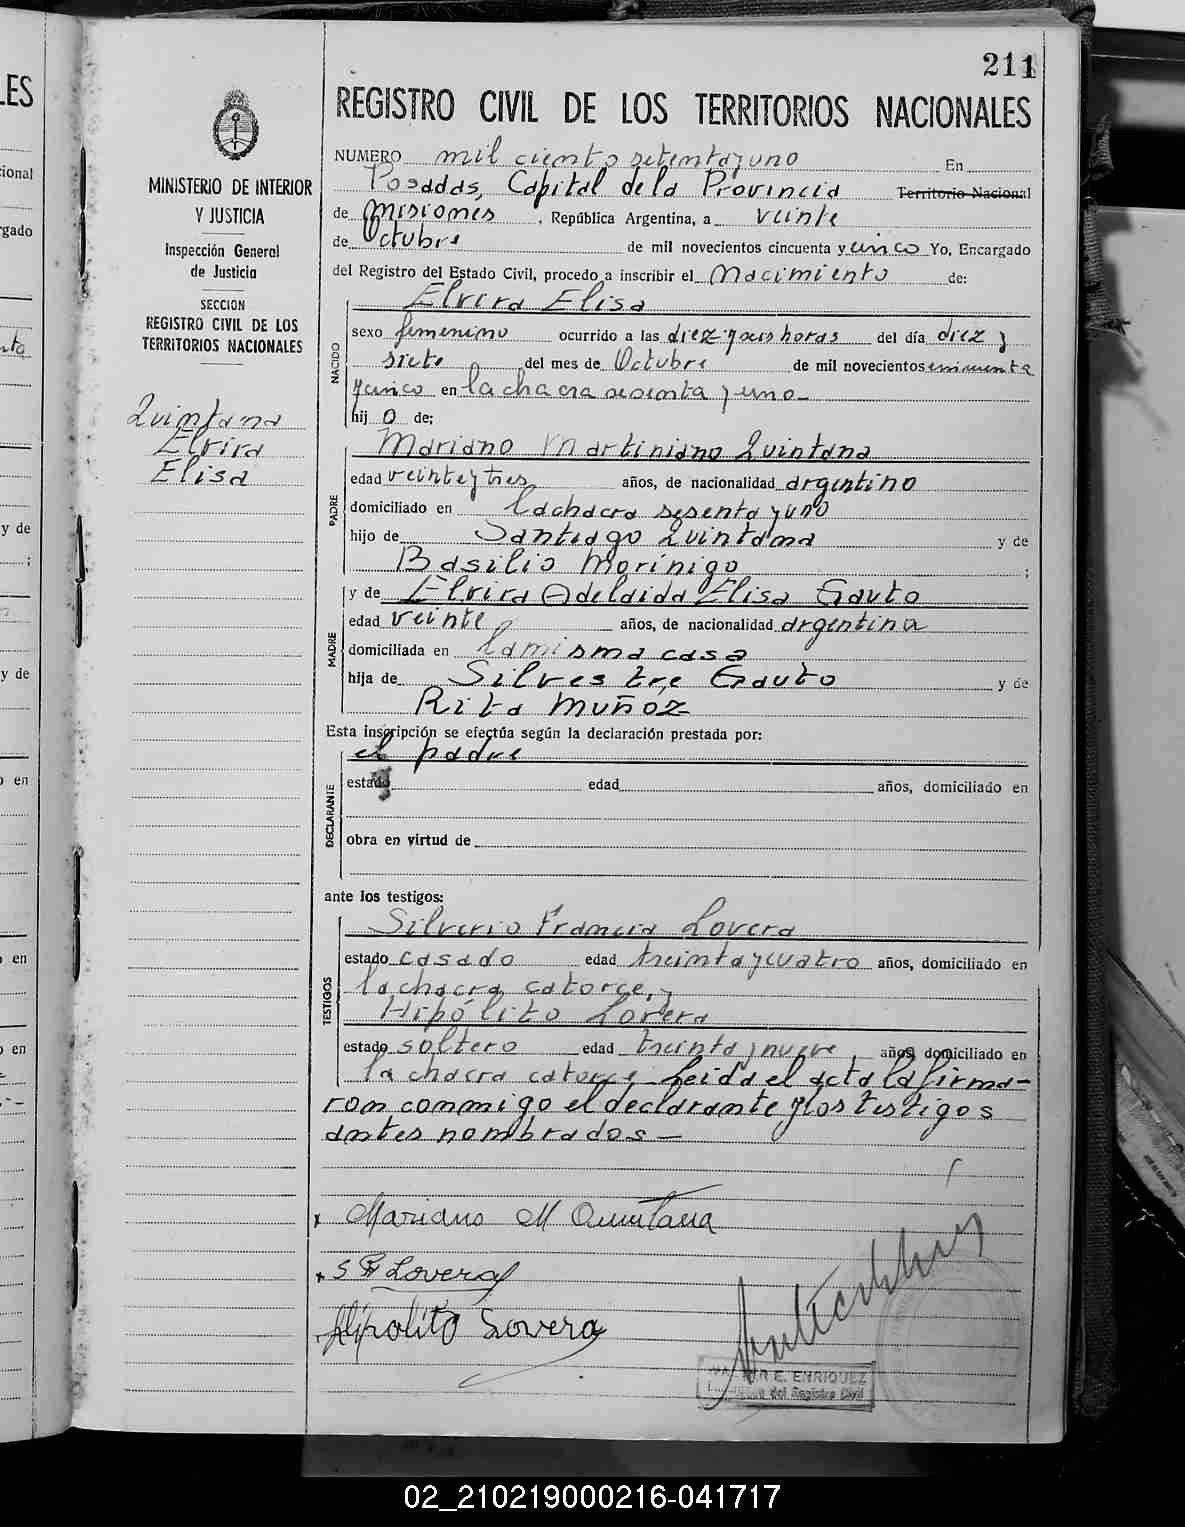 211
REGISTRO CIVIL DE LOS TERRITORIOS NACIONALES
MINISTERIO DE INTERIOR
Y JUSTICIA
Inspección General
de Justicia
SECCION
REGISTRO CIVIL DE LOS
TERRITORIOS NACIONALES
Quintana
Elvira
Elisa
NUMERO mil ciento setenta y uno En
Posadas, Capital de la Provincia Territorio Nacional
de Misiones, República Argentina, a veinte
de Octubre de mil novecientos cincuenta y cinco Yo, Encargado
del Registro del Estado Civil, procedo a inscribir el Nacimiento de:
Elvira Elisa
NACIDO
sexo femenino ocurrido a las diez y seis horas del día diez y
siete del mes de Octubre de mil novecientos cincuenta
y cinco en la chacra sesenta y uno-
hij o de;
Mariano Martiniano Quintana
PADRE
edad veinte y tres años, de nacionalidad argentino
domiciliado en la chacra sesenta y uno
hijo de Santiago Quintana y de
Basilio Morínigo ;
y de Elvira Adelaida Elisa Gauto
MADRE
edad veinte años, de nacionalidad argentina
domiciliada en la misma casa
hija de Silvestre Gauto y de
Rita Muñoz
Esta inscripción se efectúa según la declaración prestada por:
el padre
DECLARANTE
estado edad años, domiciliado en
obra en virtud de
ante los testigos:
Silverio Francia Lovera
TESTIGOS
estado casado edad treinta y cuatro años, domiciliado en
la chacra catorce, y
Hipólito Lovera
estado soltero edad treinta y nueve, años, domiciliado en
la chacra catorce Leida el acta la firma-
ron conmigo el declarante y los testigos
antes nombrados-
x Mariano M Quintana
x S F Lovera
Hipolito Lovera
R E. ENRIQUEZ
del Registro Civil
ES
cional
rgado
y de
;
y de
o en
o en
o en
02_210219000216-041717